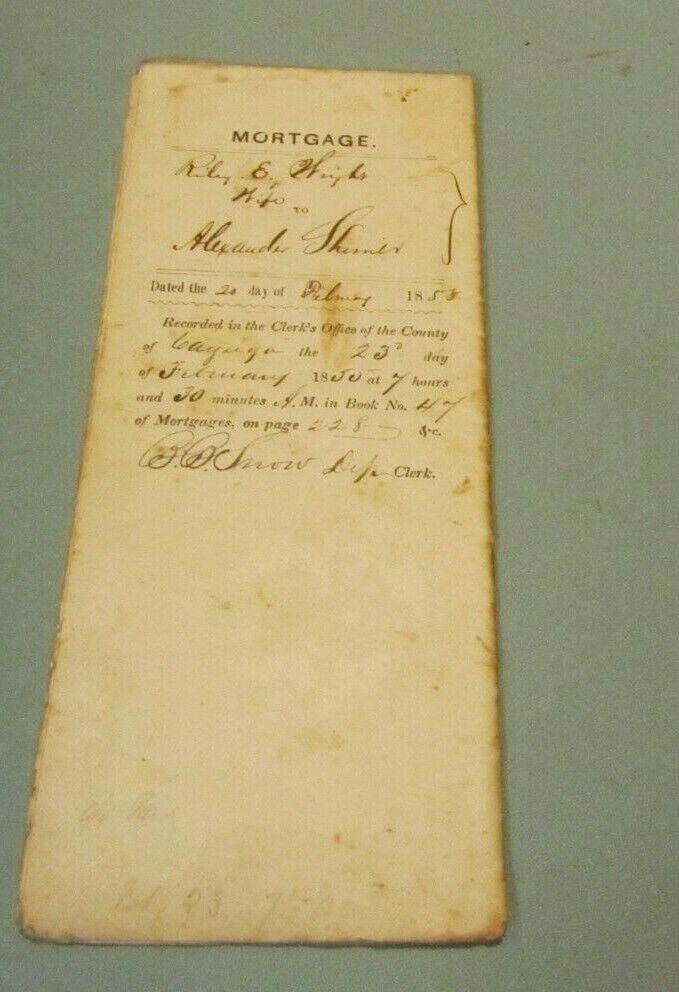 MORTGAGE.
Riley E. Wright
Wife
TO
Alexander
Dated the 20 day of February 1855
Recorded in the Clerk's Office of the County
of Cayuga the 23d day
of February 1855 at 7 hours
and 30 minutes A.M. in Book No. 47
of Mortgages, on page 228 &c.
B.B. Snow Dep Clerk.
Feb 23 7